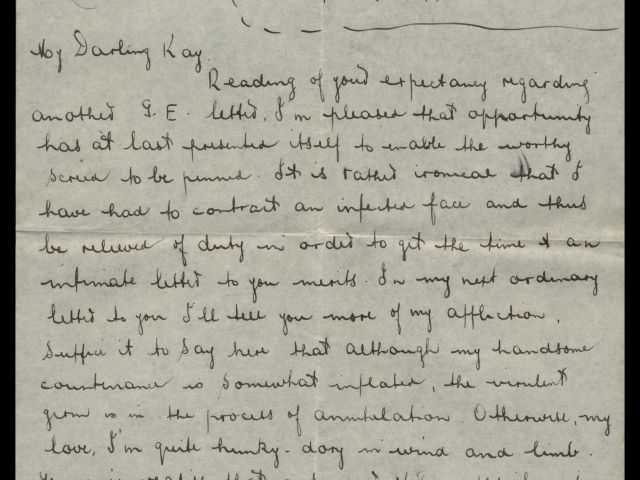 My Darling Kay,
Reading of your expectancy regarding
another G.E. letter, I'm pleased that opportunity
has at last presented itself to enable the worthy
screed to be penned. It is rather ironical that I
have had to contract an infected face and thus
be relieved of duty in order to get the time
intimate letter to you merits. In my next ordinary
letter to you I'll tell you more of my affliction.
Suffice it to say here that although my handsome
countenance is somewhat inflated, the virulent
germ is in the process of annihilation. Otherwise, my
love, I'm quite hunky-dory in wind and limb.